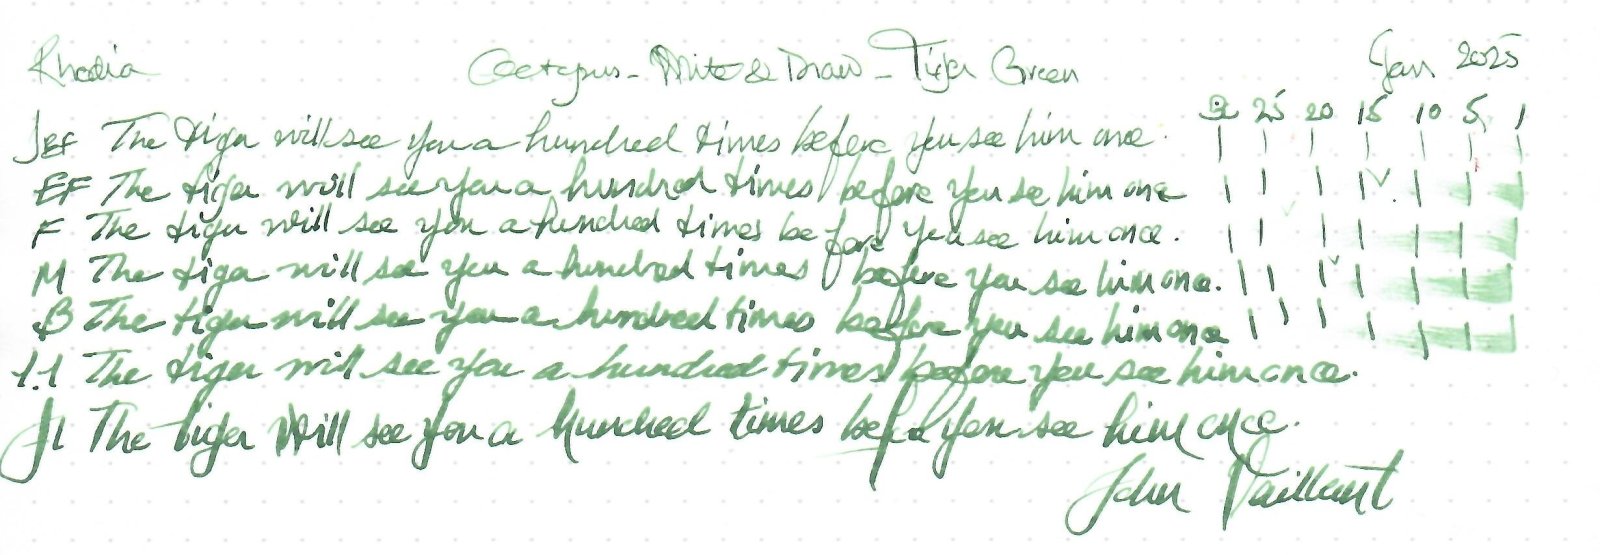 Rhodia Octopus - Write & Draw - Tiger Green Jan 2025
30 25 20 15 10 5 1
JEF The tiger will see you a hundred times before you see him once.
EF The tiger will see you a hundred times before you see him once
F The tiger will see you a hundred times before you see him once.
M The tiger will see you a hundred times before you see him once.
B The tiger will see you a hundred times before you see him once
1.1 The tiger will see you a hundred times before you see him once.
The tiger will see you a hundred times before you see him once.
John Vaillant